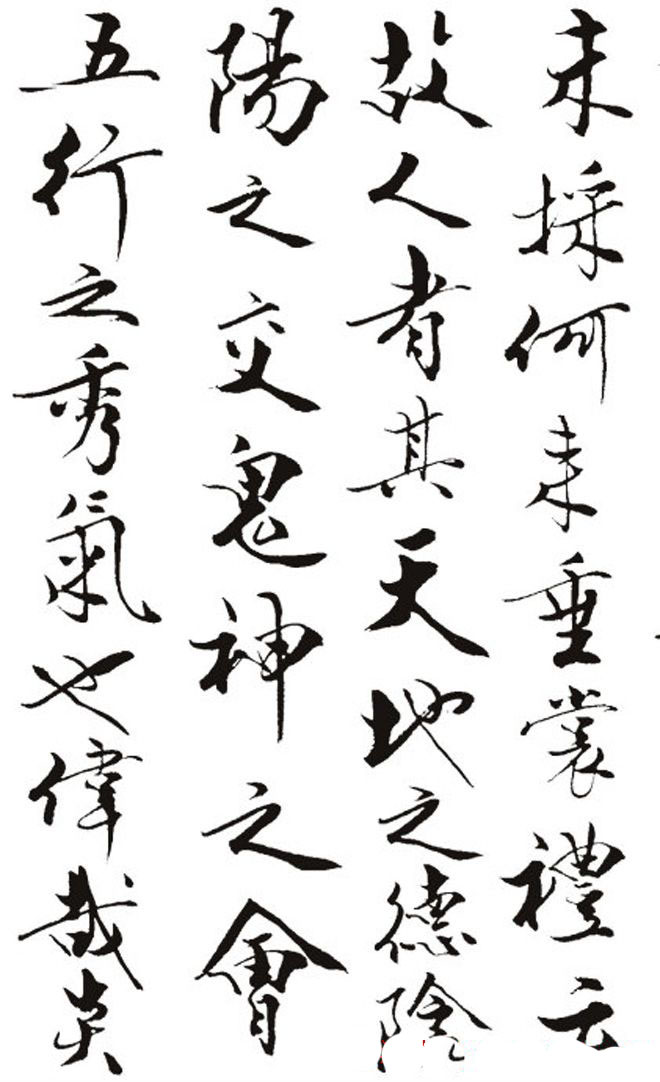 未採何耒垂裳禮云
故人者其天地之德陰
陽之交鬼神之會
五行之秀氣也偉哉炎